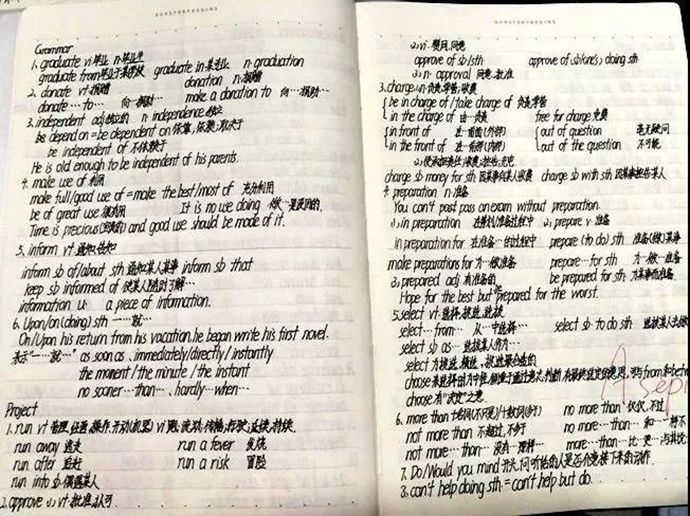 Grammar
1. graduate vi 毕业 n 毕业生
graduate from 毕业于某学校 graduate in 某专业 n graduation
2. donate vt 捐赠 donation n 捐赠
donate … to … 向…捐赠… make a donation to 向…捐赠…
3. independent adj 独立的 n independence 独立
be depend on = be dependent on 依靠,依赖,取决于
be independent of 不依赖于
He is old enough to be independent of his parents.
4. make use of 利用
make full/good use of = make the best/most of 充分利用
be of great use 很有用 It is no use doing 做…是没用的.
Time is precious(宝贵的) and good use should be made of it.
5. inform vt 通知,告知
inform sb of/about sth 通知某人某事 inform sb that
keep sb informed of 使某人随时了解…
information U. a piece of information.
6. Upon/on (doing) sth 一…就…
On/Upon his return from his vacation, he began write his first novel.
表示"一…就…" as soon as, immediately/directly/instantly
the monent / the minute / the instant
no sooner … than …, hardly … when …
Project
1. run vt 管理,经营,操作,开动(机器) vi 跑,流淌,传播,行驶,延续,持续.
run away 逃走 run a fever 发烧
run after 追赶 run a risk 冒险
run into sb 偶遇某人
2. approve (1) vt 批准,认可
(2) vi 赞同,同意
approve of sb/sth approve of sb(one's) doing sth
(3) n approval 同意,批准
3. charge (1) n 负责,掌管,收费
be in charge of / take charge of 负责,掌管
in the charge of 由…负责 free for charge 免费
in front of 在…前面(外部) out of question 毫无疑问
in the front of 在…前部(内部) out of the question 不可能
charge sb money for sth 因某事向某人收费 charge sb with sth 因某事控告某人
4. preparation n 准备
You can't post pass an exam without preparation.
(1) in preparation 在准备过程中 (2) prepare v 准备
in preparation for 在准备…的过程中 prepare (to do) sth 准备(做)某事
make preparations for 为…做准备 prepare … for sth 为…做…准备
(3) prepared adj 有准备的 be prepared for sth 为某事而准备
Hope for the best but prepared for the worst.
5. select vt 选择,挑选,选拔
select … from … 从…中选择… select sb to do sth 选拔某人去做
select sb as … 选拔某人作为…
select 为
choose
choose 有"决定"之意.
6. more than no more than 仅仅,不过
not more than 不超过,不多于 no more … than … 和…一样不
not more … than … 没有…那样… more … than … 比…更…
7. Do/Would you mind 开头,问听话的人是否介意接下来的动作.
8. can't help doing sth = can't help but do.
A Sep